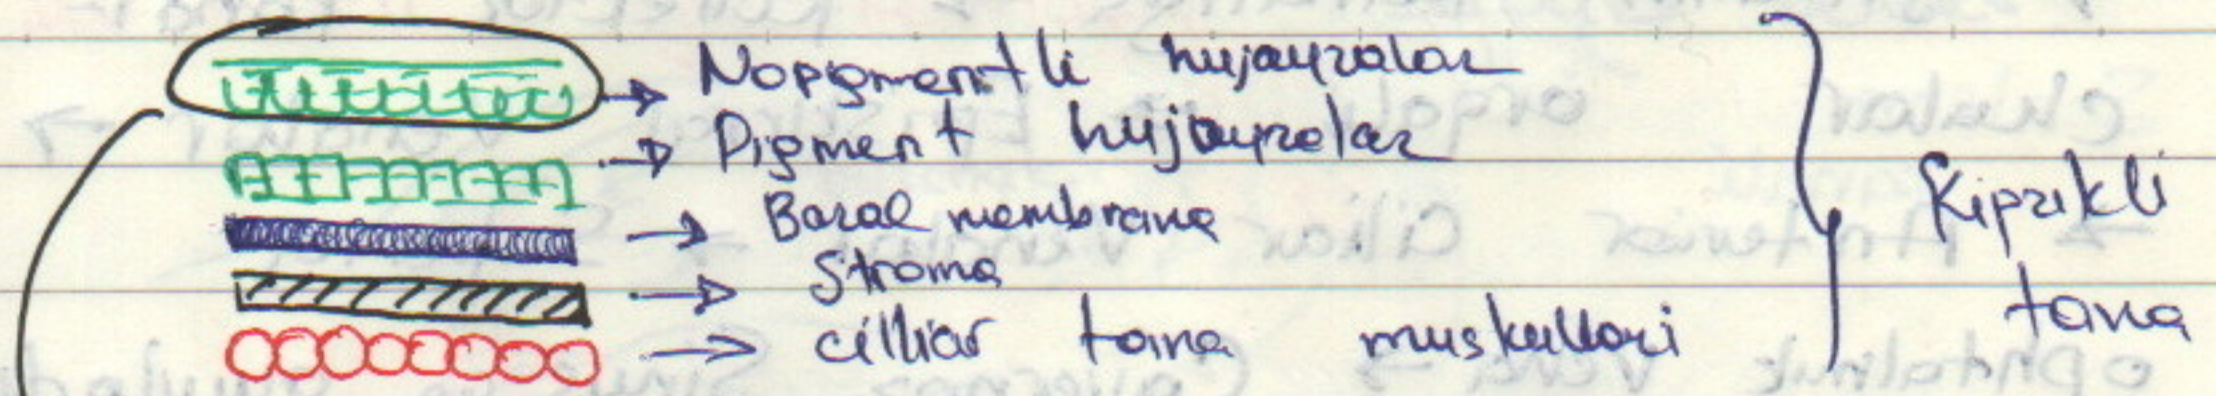 Nopigmentli hujayralar
Pigment hujayralar
Bazal membrana
Stroma
cilliar tana muskullari
Kiprikli
tana